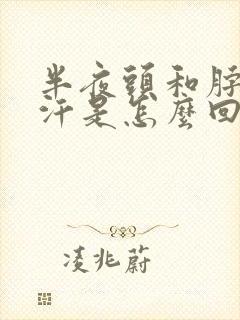 半夜頭和脖
汗是怎麼回
凌兆蔚